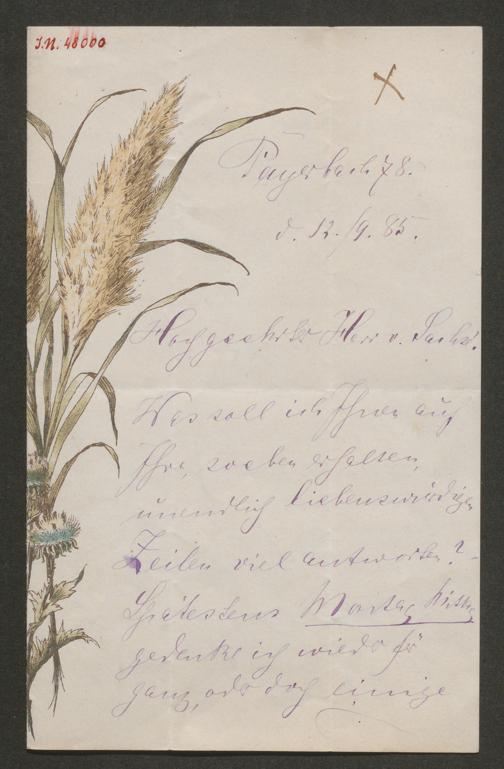 J.N. 48000
Payerbach 78.
d. 12./9. 85.
Hochgeehrter Herr v.
Was soll ich Ihnen auf
Ihre, soeben erhalten,
unendlich liebenswürdigen
Zeilen viel antworten? -
Spätestens Montag
gedenke ich wieder für
ganz, oder doch einige